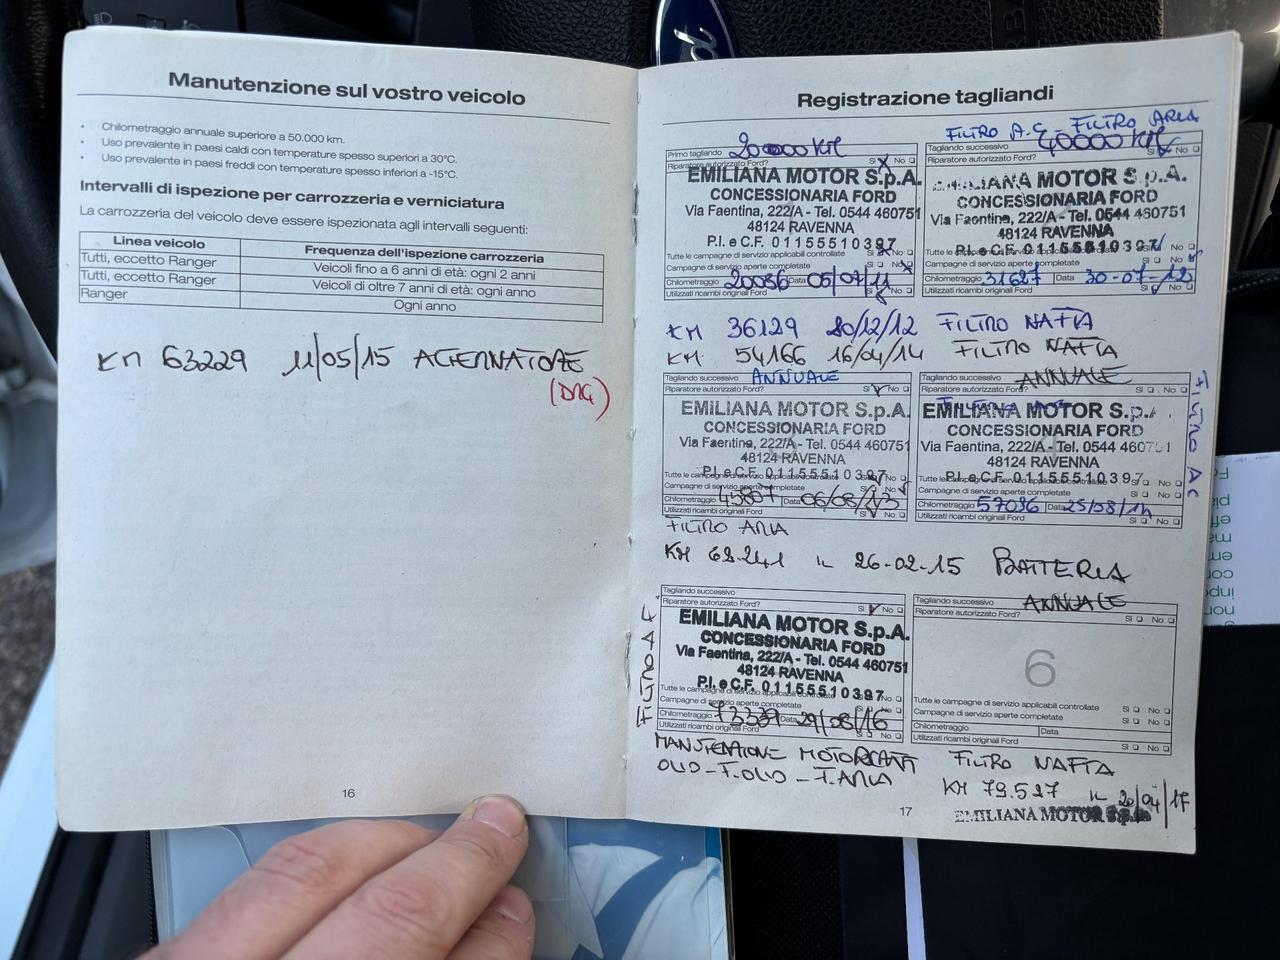 Manutenzione sul vostro veicolo
• Chilometraggio annuale superiore a 50.000 km.
• Uso prevalente in paesi caldi con temperature spesso superiori a 30°C.
• Uso prevalente in paesi freddi con temperature spesso inferiori a -15°C.
Intervalli di ispezione per carrozzeria e verniciatura
La carrozzeria del veicolo deve essere ispezionata agli intervalli seguenti:
Linea veicolo Frequenza dell'ispezione carrozzeria
Tutti, eccetto Ranger Veicoli fino a 6 anni di età: ogni 2 anni
Tutti, eccetto Ranger Veicoli di oltre 7 anni di età: ogni anno
Ranger Ogni anno
KM 63229 11/05/15 ALTERNATORE
16
Registrazione tagliandi
FILTRO A.C. FILTRO ARIA
Primo tagliando 20000 KM
Riparatore autorizzato Ford? Sì No
EMILIANA MOTOR S.p.A.
CONCESSIONARIA FORD
Via Faentina, 222/A - Tel. 0544 460751
48124 RAVENNA
P.I. e C.F. 01155510397
Tutte le campagne di servizio applicabili controllate Sì No
Campagne di servizio aperte completate Sì No
Chilometraggio 20086 Data
Utilizzati ricambi originali Ford Sì No
Tagliando successivo 40000 KM
Riparatore autorizzato Ford? Sì No
EMILIANA MOTOR S.p.A.
CONCESSIONARIA FORD
Via Faentina, 222/A - Tel. 0544 460751
48124 RAVENNA
P.I. e C.F. 01155510397
Tutte le campagne di servizio applicabili controllate Sì No
Campagne di servizio aperte completate Sì No
Chilometraggio 31627 Data 30-07-12
Utilizzati ricambi originali Ford Sì No
KM 36129 20/12/12 FILTRO NAFTA
KM. 54166 16/04/14 FILTRO NAFTA
Tagliando successivo ANNUALE
Riparatore autorizzato Ford? Sì No
EMILIANA MOTOR S.p.A.
CONCESSIONARIA FORD
Via Faentina, 222/A - Tel. 0544 460751
48124 RAVENNA
P.I. e C.F. 01155510397
Tutte le campagne di servizio applicabili controllate Sì No
Campagne di servizio aperte completate Sì No
Chilometraggio 45807 Data 06/08/13
Utilizzati ricambi originali Ford Sì No
FILTRO ARIA
Tagliando successivo ANNUALE
Riparatore autorizzato Ford? Sì No
EMILIANA MOTOR S.p.A.
CONCESSIONARIA FORD
Via Faentina, 222/A - Tel. 0544 460751
48124 RAVENNA
P.I. e C.F. 01155510397
Tutte le campagne di servizio applicabili controllate Sì No
Campagne di servizio aperte completate Sì No
Chilometraggio 57036 Data 25/08/14
Utilizzati ricambi originali Ford Sì No
FILTRO AC
KM 62.241 IL 26-02-15 BATTERIA
Tagliando successivo
Riparatore autorizzato Ford? Sì No
EMILIANA MOTOR S.p.A.
CONCESSIONARIA FORD
Via Faentina, 222/A - Tel. 0544 460751
48124 RAVENNA
P.I. e C.F. 01155510397
Tutte le campagne di servizio applicabili controllate Sì No
Campagne di servizio aperte completate Sì No
Chilometraggio 73339 Data 29/08/16
Utilizzati ricambi originali Ford Sì No
FILTRO A F
MANUTENZIONE MOTORCRAFT
OLIO-F.OLIO-F.ARIA
Tagliando successivo ANNUALE
Riparatore autorizzato Ford? Sì No
6
Tutte le campagne di servizio applicabili controllate Sì No
Campagne di servizio aperte completate Sì No
Chilometraggio Data
Utilizzati ricambi originali Ford Sì No
FILTRO NAFTA
KM 79.527 IL 20/04/17
EMILIANA MOTOR S.p.A.
17